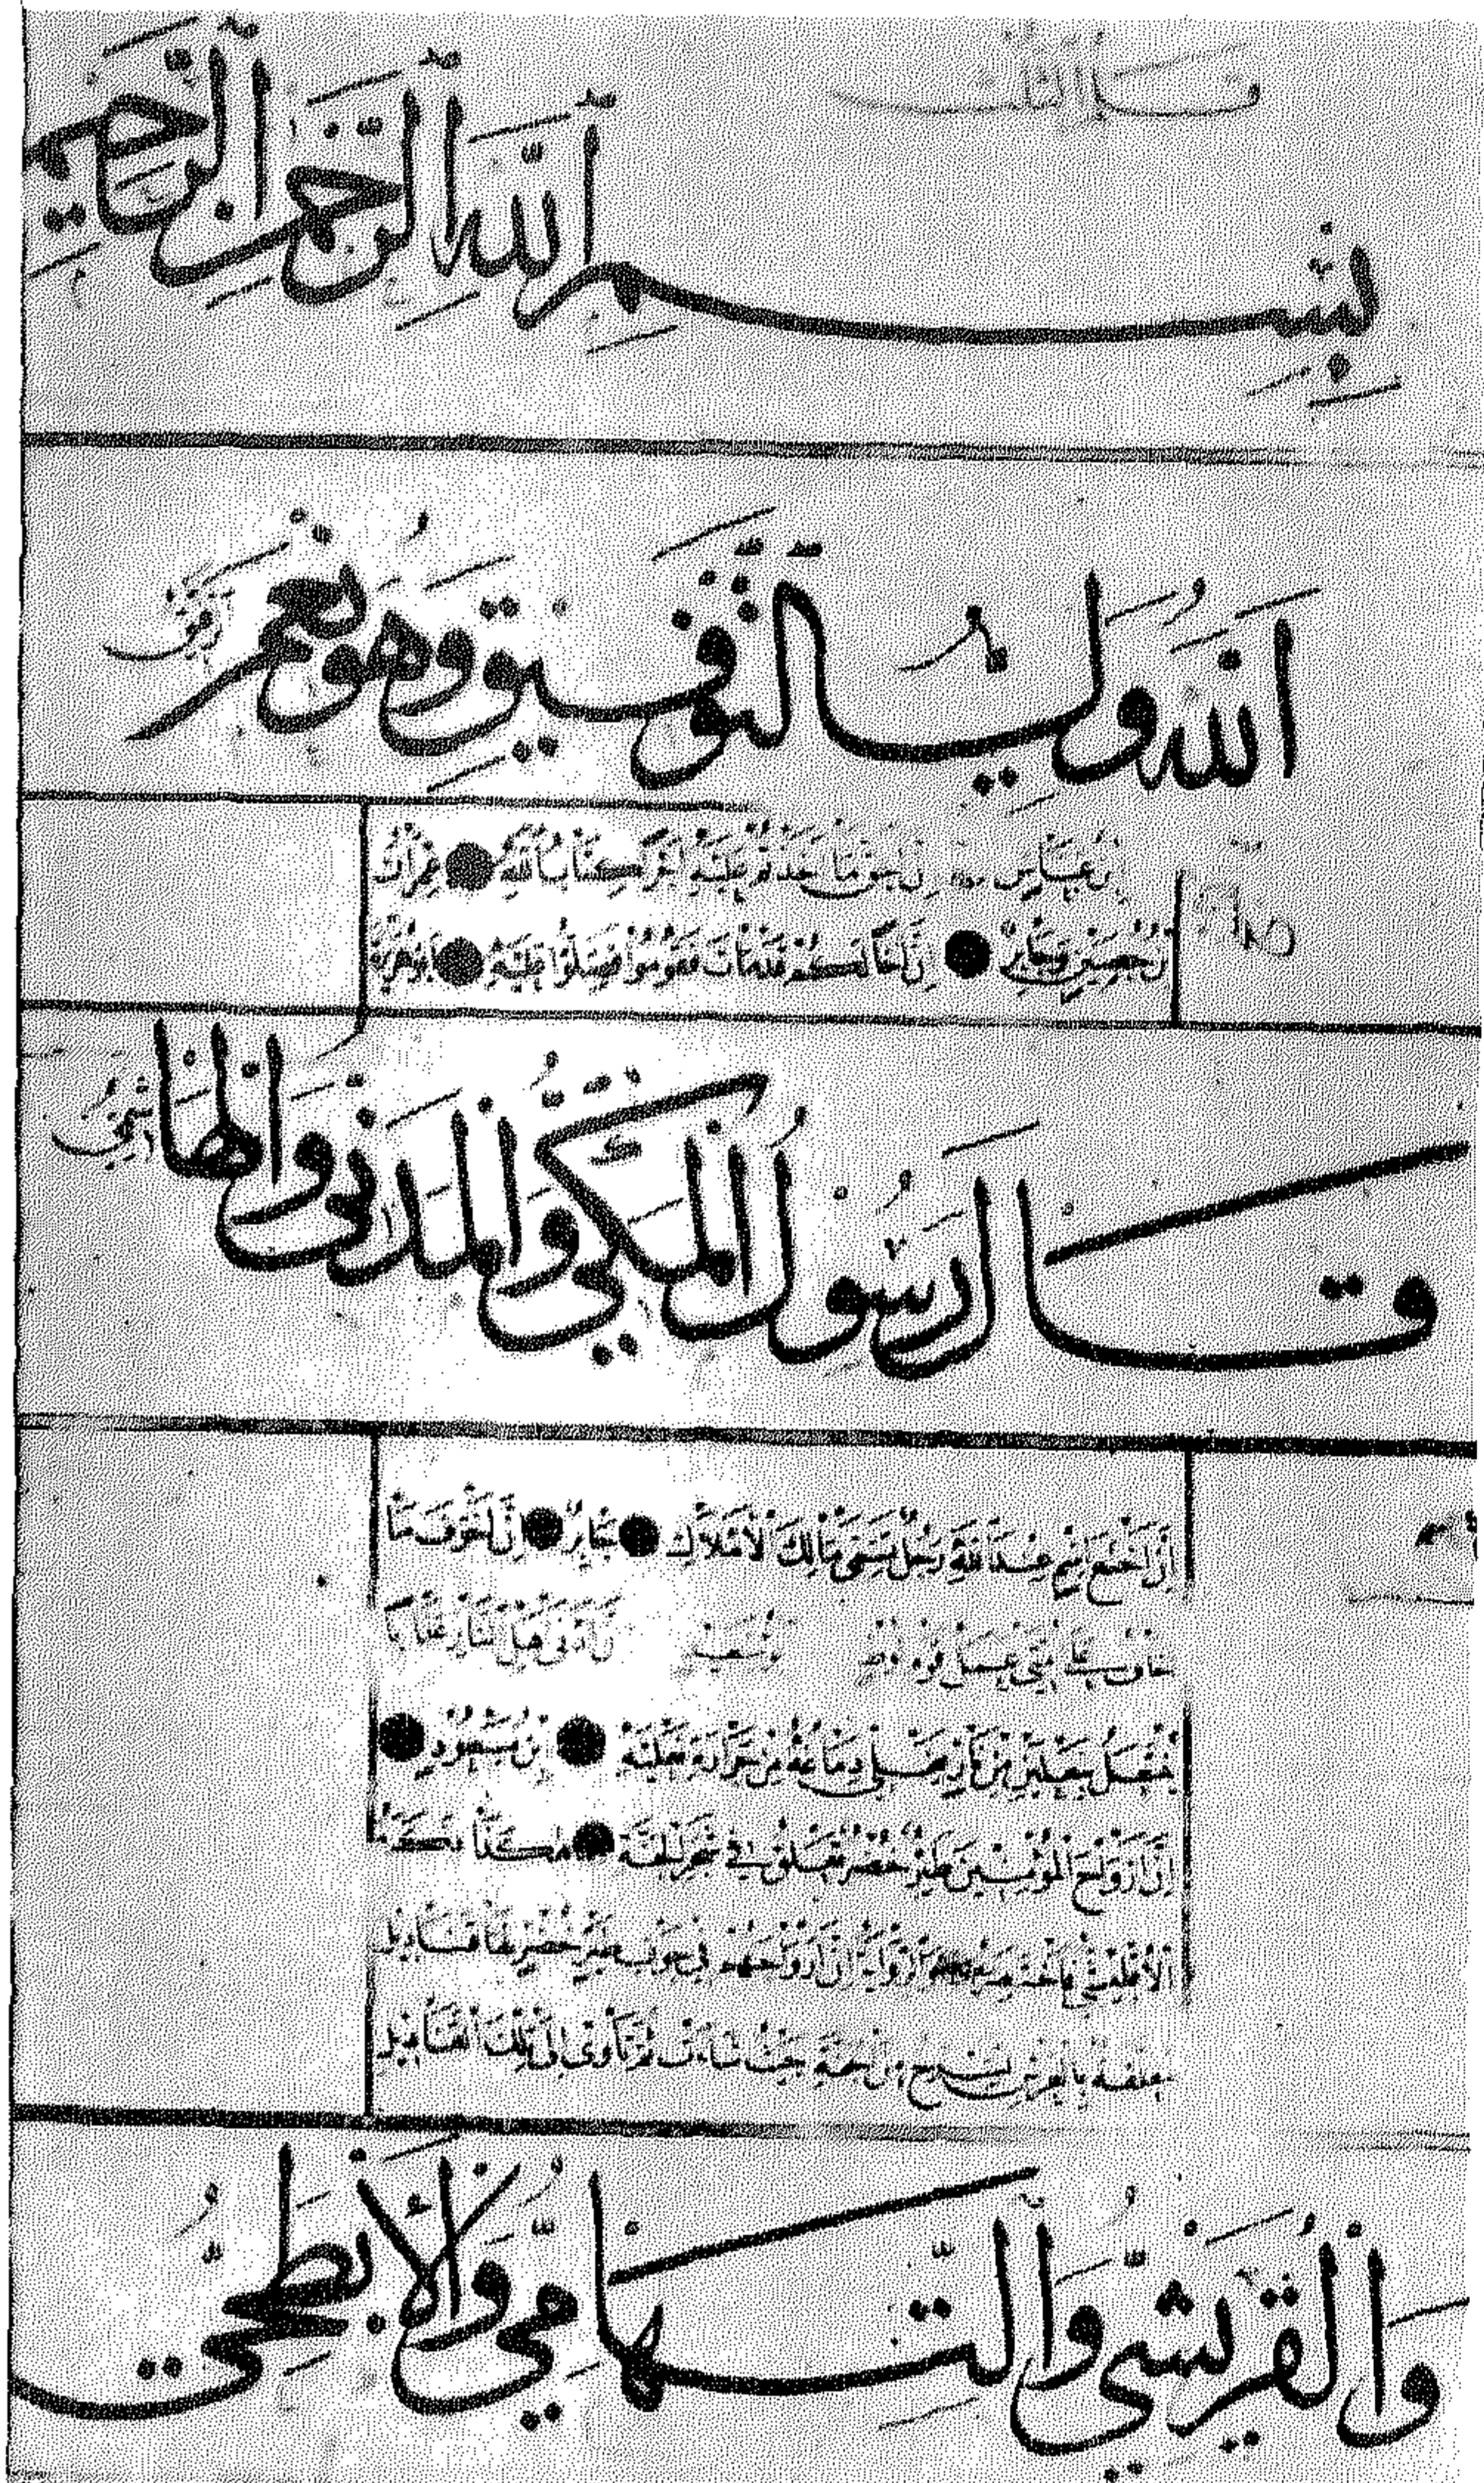 بِسْمِ اللّٰهِ الرَّحْمٰنِ الرَّحِيْمِ
اَللّٰهُ وَلِيُّ التَّوْفِيْقِ وَهُوَ نِعْمَ الرَّفِيْقُ
ابْنُ عَبَّاسٍ اِنَّ اَحَقَّ مَا اَخَذْتُمْ عَلَيْهِ اَجْرًا كِتَابُ اللّٰهِ عِمْرَانُ
بْنُ حُصَيْنٍ وَجَابِرٌ اِنَّ اَخًا لَكُمْ قَدْ مَاتَ فَقُوْمُوْا فَصَلُّوْا عَلَيْهِ اَبُوْ هُرَيْرَةَ
قَالَ رَسُوْلُ الْمَكِّيُّ وَالْمَدَنِيُّ وَالْهَاشِمِيُّ
اِنَّ اَخْنَعَ اسْمٍ عِنْدَ اللّٰهِ رَجُلٌ تَسَمّٰى مَالِكَ الْاَمْلَاكِ جَابِرٌ اِنَّ اَخْوَفَ مَا
اَخَافُ عَلٰى اُمَّتِيْ عَمَلُ قَوْمِ لُوْطٍ اَبُوْ سَعِيْدٍ اِنَّ اَدْنٰى اَهْلِ النَّارِ عَذَابًا
يَنْتَعِلُ بِنَعْلَيْنِ مِنْ نَارٍ يَغْلِيْ دِمَاغُهُ مِنْ حَرَارَةِ نَعْلَيْهِ ابْنُ مَسْعُوْدٍ
اِنَّ اَرْوَاحَ الْمُؤْمِنِيْنَ طَيْرٌ خُضْرٌ تَعْلُقُ فِيْ شَجَرِ الْجَنَّةِ هٰكَذَا ذَكَرَهُ
اِنَّ اَرْوَاحَهُمْ فِيْ جَوْفِ طَيْرٍ خُضْرٍ لَهَا قَنَادِيْلُ
مُعَلَّقَةٌ بِالْعَرْشِ تَسْرَحُ مِنَ الْجَنَّةِ حَيْثُ شَاءَتْ ثُمَّ تَأْوِيْ اِلٰى تِلْكَ الْقَنَادِيْلِ
وَالْقُرَيْشِيُّ وَالتِّهَامِيُّ وَالْاَبْطَحِيُّ